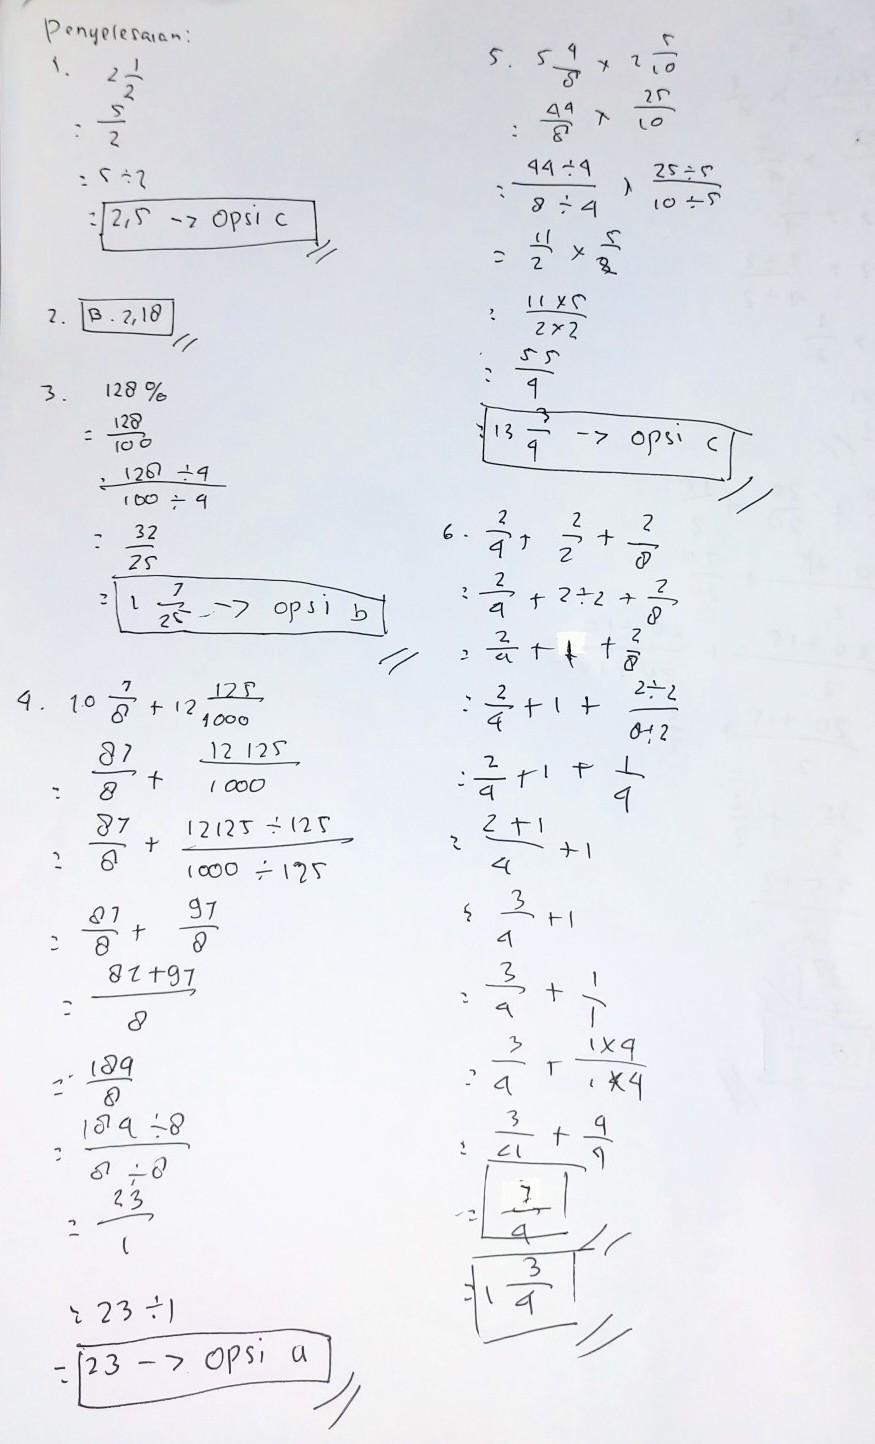 Penyelesaian:
1. 2 1/2
= 5/2
= 5 ÷ 2
= 2,5 -> Opsi c
2. B. 2,18
3. 128 %
= 128/100
= 128 ÷ 4 / 100 ÷ 4
= 32/25
= 1 7/25 -> opsi b
4. 10 7/8 + 12 125/1000
= 87/8 + 12 125/1000
= 87/8 + 12125 ÷ 125 / 1000 ÷ 125
= 87/8 + 97/8
= 87+97 / 8
= 184/8
= 184 ÷ 8 / 8 ÷ 8
= 23/1
= 23 ÷ 1
= 23 -> Opsi a
5. 5 4/8 × 2 5/10
= 44/8 × 25/10
= 44 ÷ 4 / 8 ÷ 4 × 25 ÷ 5 / 10 ÷ 5
= 11/2 × 5/2
= 11 × 5 / 2 × 2
= 55/4
= 13 3/4 -> opsi c
6. 2/4 + 2/2 + 2/8
= 2/4 + 2÷2 + 2/8
= 2/4 + 1 + 2/8
= 2/4 + 1 + 2÷2 / 8÷2
= 2/4 + 1 + 1/4
= 2+1 / 4 + 1
= 3/4 + 1
= 3/4 + 1/1
= 3/4 + 1×4 / 1×4
= 3/4 + 4/4
= 7/4
= 1 3/4